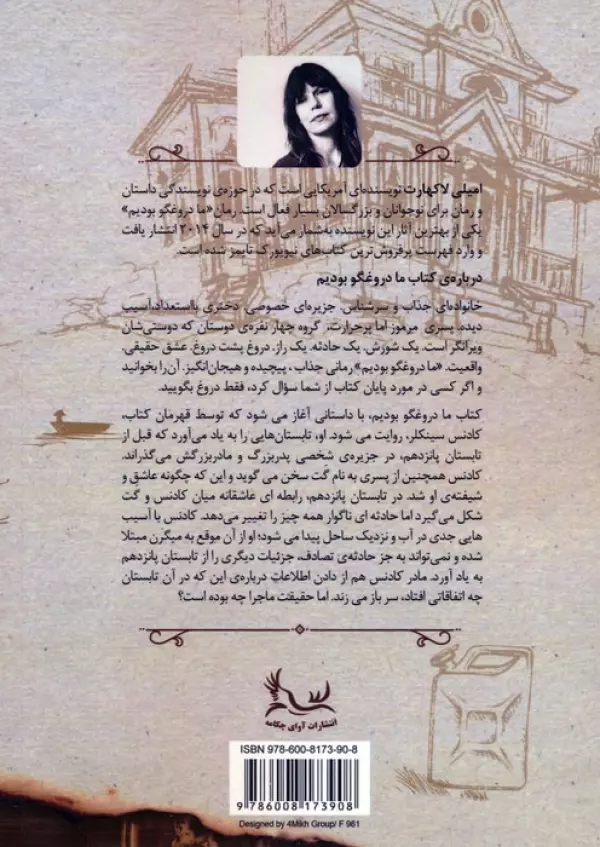 امیلی لاکهارت نویسنده‌ای آمریکایی است که در حوزه‌ی نویسندگی داستان
و رمان برای نوجوانان و بزرگسالان بسیار فعال است. رمان «ما دروغگو بودیم»
یکی از بهترین آثار این نویسنده به‌شمار می‌آید که در سال ۲۰۱۴ انتشار یافت
و وارد فهرست پرفروش‌ترین کتاب‌های نیویورک تایمز شده است.
درباره‌ی کتاب ما دروغگو بودیم
خانواده‌ای جذاب و سرشناس. جزیره‌ای خصوصی. دختری بااستعداد، آسیب
دیده. پسری مرموز اما پرحرارت. گروه چهار نفره‌ی دوستان که دوستی‌شان
ویرانگر است. یک شورش. یک حادثه. یک راز. دروغ پشت دروغ. عشق حقیقی.
واقعیت. «ما دروغگو بودیم» رمانی جذاب، پیچیده و هیجان‌انگیز. آن‌را بخوانید
و اگر کسی در مورد پایان کتاب از شما سؤال کرد، فقط دروغ بگویید.
کتاب ما دروغگو بودیم، با داستانی آغاز می شود که توسط قهرمان کتاب،
کادنس سینکلر، روایت می شود. او، تابستان‌هایی را به یاد می‌آورد که قبل از
تابستان پانزدهم، در جزیره‌ی شخصی پدربزرگ و مادربزرگش می‌گذراند.
کادنس همچنین از پسری به نام گَت سخن می گوید و این که چگونه عاشق و
شیفته‌ی او شد. در تابستان پانزدهم، رابطه ای عاشقانه میان کادنس و گت
شکل می‌گیرد اما حادثه ای ناگوار همه چیز را تغییر می‌دهد. کادنس با آسیب
هایی جدی در آب و نزدیک ساحل پیدا می شود؛ او از آن موقع به میگرن مبتلا
شده و نمی‌تواند به جز حادثه‌ی تصادف، جزئیات دیگری را از تابستان پانزدهم
به یاد آورد. مادر کادنس هم از دادن اطلاعات درباره‌ی این که در آن تابستان
چه اتفاقاتی افتاد، سر باز می زند. اما حقیقت ماجرا چه بوده است؟
انتشارات آوای چکامه
ISBN 978-600-8173-90-8
9 786008 173908
Designed by 4Mikh Group/ F 961